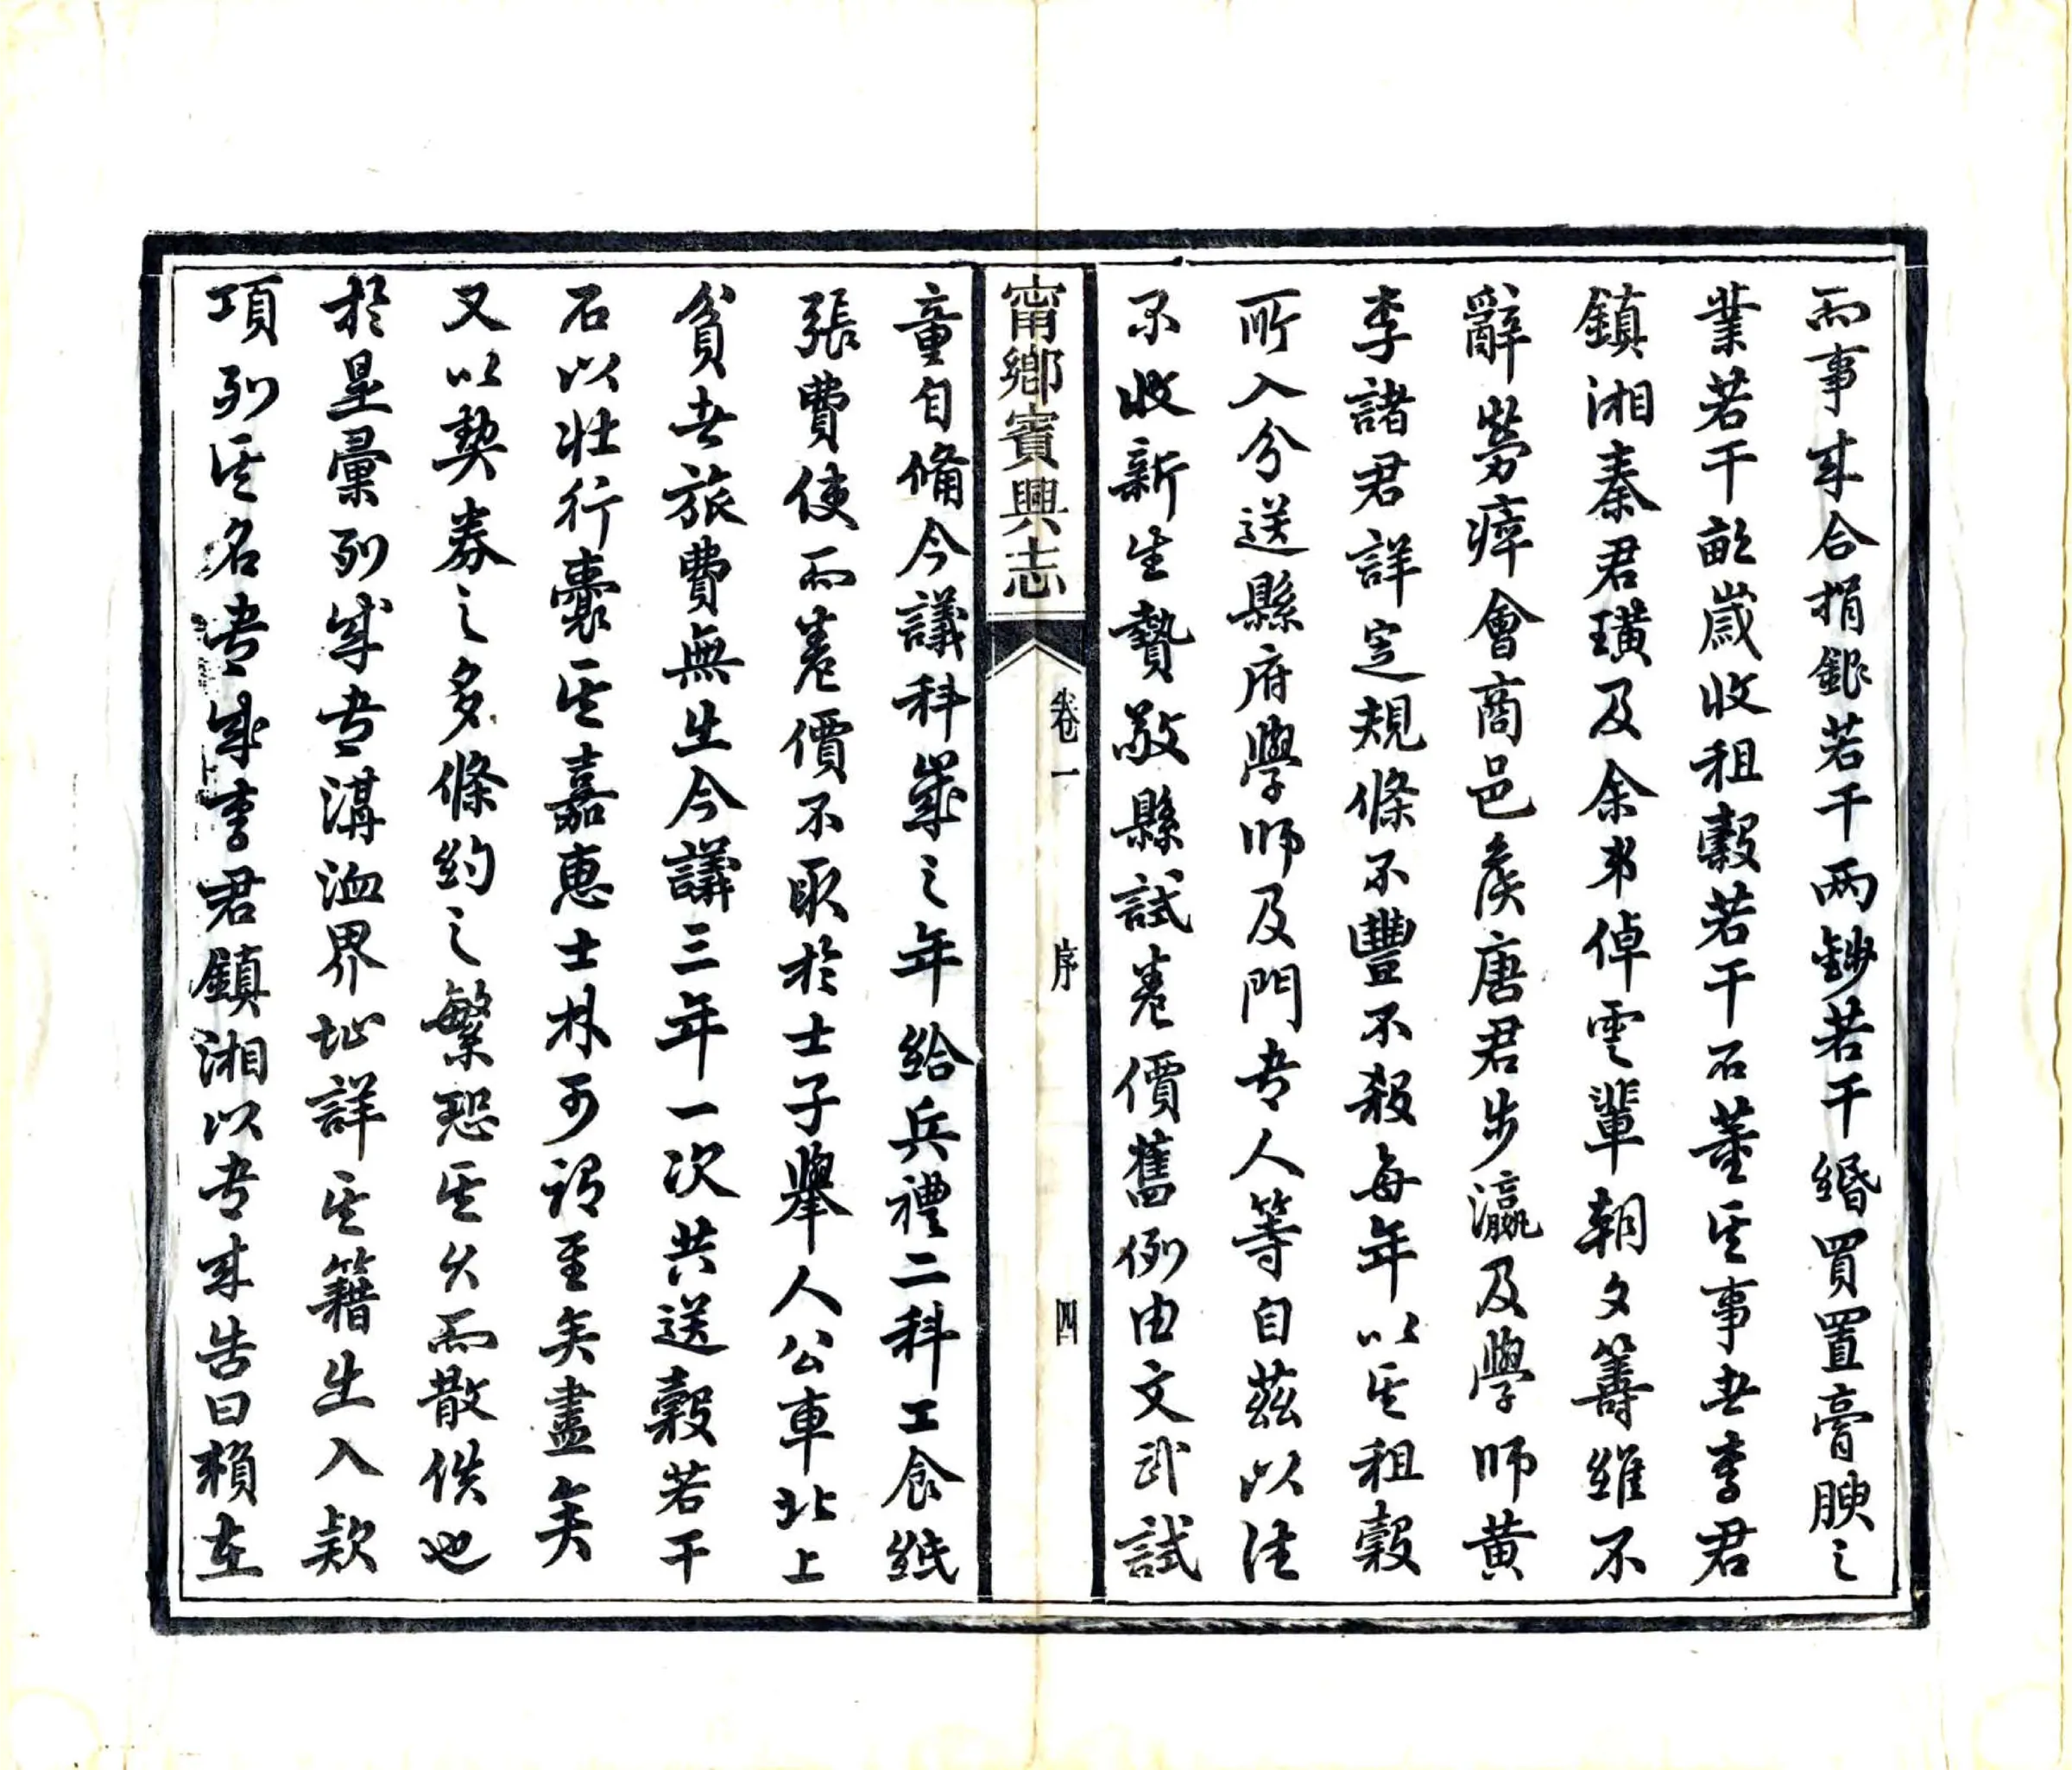 而事成合捐銀若干兩鈔若干緡買置膏腴之
業若干畝歲收租穀若干石董其事者李君
鎮湘秦君璜及余弟倬雲輩朝夕籌維不
辭勞瘁會商邑矦唐君步瀛及學師黄
李諸君詳定規條不豐不殺每年以其租穀
所入分送縣府學師及門者人等自茲以往
不收新生贄敬縣試卷價舊例由文武試
甯鄉賓興志
卷一
序
四
童自備今議科歲之年給兵禮二科工食紙
張費使而卷價不取於士子舉人公車北上
貧者旅費無出今議三年一次共送穀若干
石以壯行囊其嘉惠士林可謂至矣盡矣
又以契券之多條約之繁恐其久而散佚也
於是彙列成書溝洫界址詳其籍出入款
項列其名書成李君鎮湘以書來告曰賴在